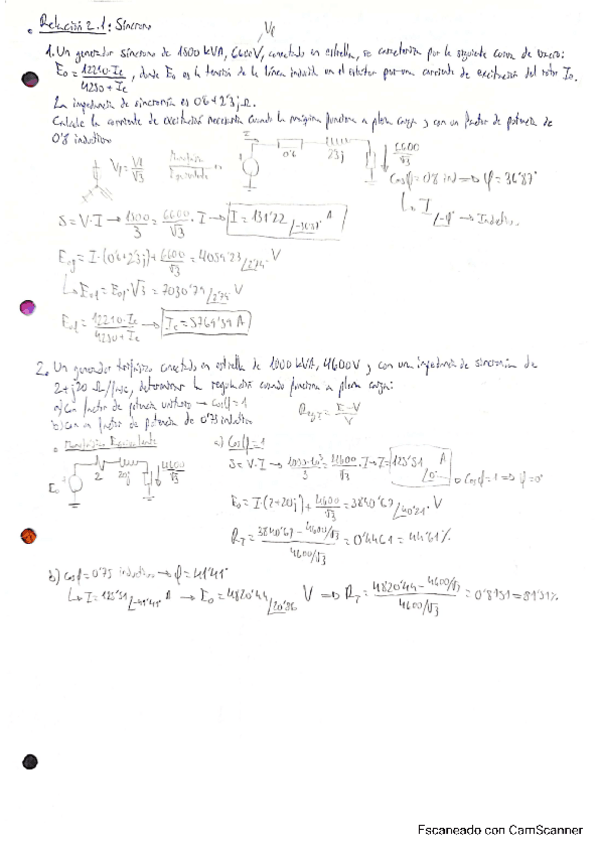 Relación 2.1: Síncrono
VL
1. Un generador síncrono de 1500 kVA, 6600V, conectado en estrella, se caracteriza por la siguiente curva de vacío:
E₀ = 12210·Ie / 4230 + Ie, donde E₀ es la tensión de línea inducida en el estátor por una corriente de excitación del rotor Ie.
La impedancia de sincronía es 0'6+2'3j Ω.
Calcule la corriente de excitación necesaria cuando la máquina funciona a plena carga y con un factor de potencia de
0'8 inductivo
I 0'6 23j 6600/√3
Vf = Vl/√3 Monofásico Equivalente
cosφ = 0'8 ind → φ = 36'87°
I /-φ → Inductivo
S = V·I → 1500/3 = 6600/√3 · I → I = 131'22 /-36'87° A
E₀f = I·(0'6+2'3j) + 6600/√3 = 4059'23 /2'75° V
E₀l = E₀f·√3 = 7030'79 /2'75° V
E₀l = 12210·Ie / 4230 + Ie → Ie = 5769'39 A
2. Un generador trifásico conectado en estrella de 1000 kVA, 4600V y con una impedancia de sincronía de
2+j20 Ω/fase, determinar la regulación cuando funciona a plena carga:
a) Con factor de potencia unitario → cosφ = 1
b) Con un factor de potencia de 0'75 inductivo
Reg = E-V / V
Monofásico Equivalente
E₀ 2 20j 4600/√3
a) Cosφ = 1
S = V·I → 1000·10³/3 = 4600/√3 · I → I = 125'51 /0° A
Cosφ = 1 → φ = 0°
E₀ = I·(2+20j) + 4600/√3 = 3840'67 /40'81° V
R% = 3840'67 - 4600/√3 / 4600/√3 = 0'4461 = 44'61%
b) Cosφ = 0'75 inductivo → φ = 41'41°
I = 125'51 /-41'41° A → E₀ = 4820'44 /20'86° V ⇒ R% = 4820'44 - 4600/√3 / 4600/√3 = 0'8151 = 81'51%
Escaneado con CamScanner